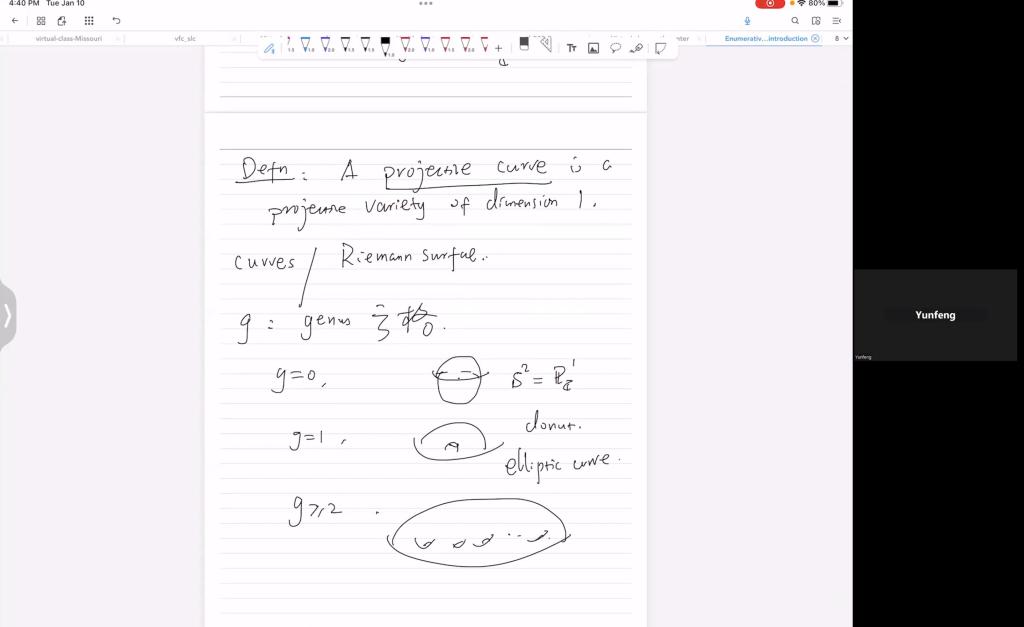 4:40 PM Tue Jan 10
80%
virtual-class-Missouri
vfc_slc
nter
Enumerativ...introduction
8
Tт
Defn: A projective curve is a
projective variety of dimension 1.
curves / Riemann surface.
g: genus
g=0, S² = ℙ¹_ℂ
donut.
g=1,
elliptic curve.
g≥2.
Yunfeng
Yunfeng